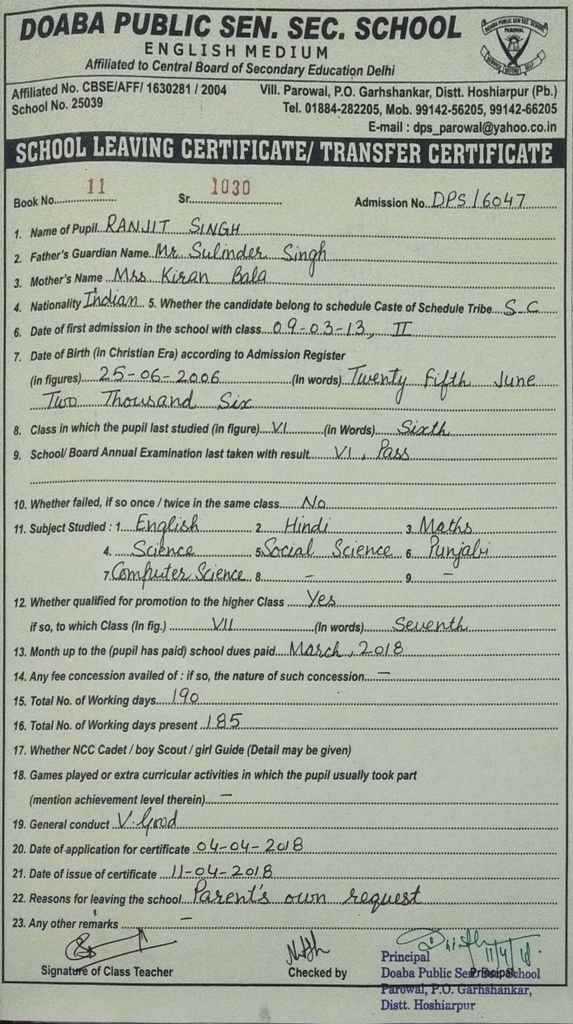 DOABA PUBLIC SEN. SEC. SCHOOL
ENGLISH MEDIUM
Affiliated to Central Board of Secondary Education Delhi
DOABA PUBLIC SEN. SEC. SCHOOL
PAROWAL
Affiliated No. CBSE/AFF/ 1630281 / 2004 Vill. Parowal, P.O. Garhshankar, Distt. Hoshiarpur (Pb.)
School No. 25039 Tel. 01884-282205, Mob. 99142-56205, 99142-66205
E-mail : dps_parowal@yahoo.co.in
SCHOOL LEAVING CERTIFICATE/ TRANSFER CERTIFICATE
Book No. 11 Sr. 1030 Admission No. DPS/6047
1. Name of Pupil RANJIT SINGH
2. Father's Guardian Name Mr. Sulinder Singh
3. Mother's Name Mrs Kiran Bala
4. Nationality Indian 5. Whether the candidate belong to schedule Caste of Schedule Tribe S.C
6. Date of first admission in the school with class 09-03-13, II
7. Date of Birth (in Christian Era) according to Admission Register
(in figures) 25-06-2006 (In words) Twenty Fifth June
Two Thousand Six
8. Class in which the pupil last studied (in figure) VI (in Words) Sixth
9. School/ Board Annual Examination last taken with result VI, Pass
10. Whether failed, if so once / twice in the same class No
11. Subject Studied : 1. English 2. Hindi 3. Maths
4. Science 5. Social Science 6. Punjabi
7. Computer Science 8. - 9. -
12. Whether qualified for promotion to the higher Class Yes
if so, to which Class (In fig.) VII (In words) Seventh
13. Month up to the (pupil has paid) school dues paid March, 2018
14. Any fee concession availed of : if so, the nature of such concession -
15. Total No. of Working days 190
16. Total No. of Working days present 185
17. Whether NCC Cadet / boy Scout / girl Guide (Detail may be given)
18. Games played or extra curricular activities in which the pupil usually took part
(mention achievement level therein) -
19. General conduct V. Good
20. Date of application for certificate 04-04-2018
21. Date of issue of certificate 11-04-2018
22. Reasons for leaving the school Parent's own request
23. Any other remarks -
11/4/18
Signature of Class Teacher Checked by Principal
Principal
Doaba Public Sen. Sec. School
Parowal, P.O. Garhshankar,
Distt. Hoshiarpur